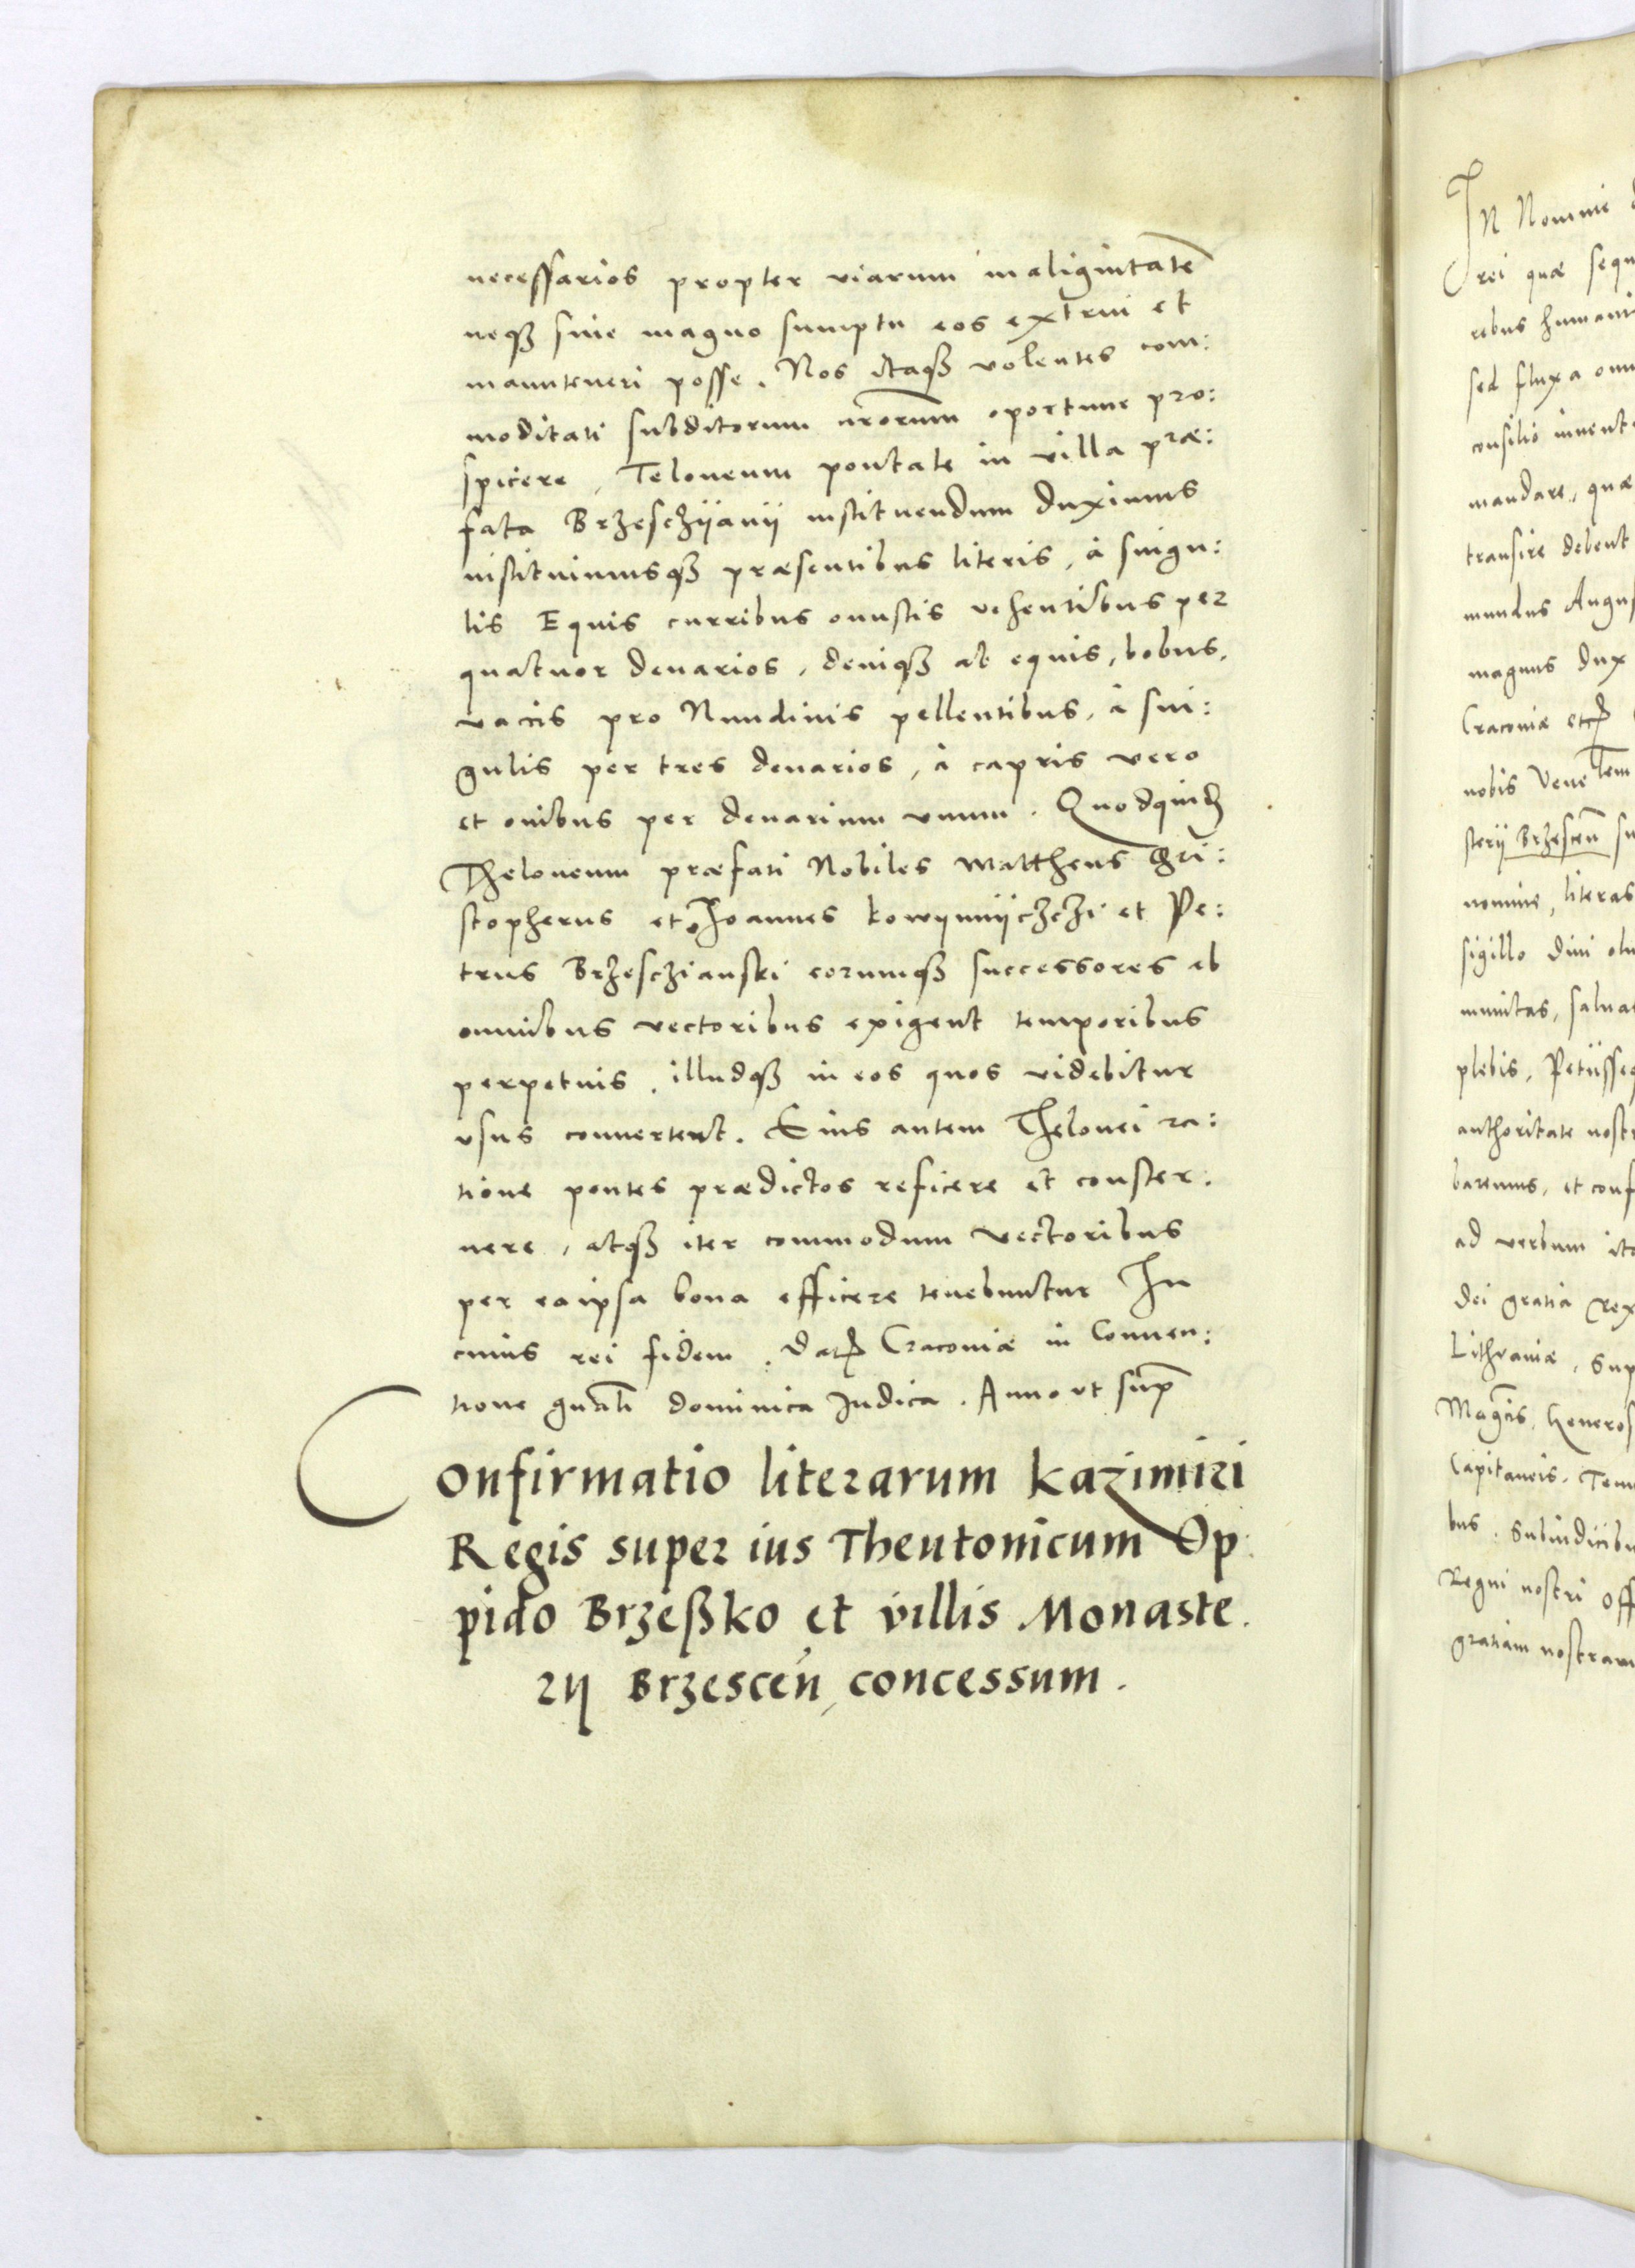 necessarios propter viarum malignitatē
neqȝ sine magno sumptu eos extrui et
manuteneri posse. Nos itaqȝ volentes com:
moditati subditorum nr̄orum oportune pro:
spicere, Teloneum pontale in villa præ:
fata Brzesczÿanÿ instituendum duximus
instituimusqȝ præsentibus literis, à singu:
lis Equis curribus onustis vehentibus per
quatuor denarios, deniqȝ ab equis, bobus,
vaccis pro Nundinis pellentibus, à sin:
gulis per tres denarios, à capris vero
et ovibus per denarium unum. Quodquid
Theloneum præfati Nobiles Mattheus Chri:
stopherus et Joannes Kowÿnÿczczi et Pe:
trus Brzesczianski eorumqȝ successores ab
omnibus vectoribus exigent temporibus
perpetuis, illudqȝ in eos quos videbitur
usus convertent. Eius autem Thelonei ra:
tione pontes prædictos reficere et conster:
nere, atqȝ iter commodum vectoribus
per ea ipsa bona efficere tenebuntur In
cuius rei fidem. Dat Cracoviæ in Conven:
tione gn̄ali dominica Judica. Anno ut sup
Confirmatio literarum Kazimiri
Regis super ius Theutonicum Op:
pido Brzeßko et villis Monaste.
rÿ Brzesceń, concessum.
In Nomine
rei quæ sequ
rebus humani
sed fluxa omn
consilio invent
mandare, quæ
transire debent
mundus Augus
magnus dux
Cracoviæ etc
nobis Vene
sterÿ Brzescen̄ su
nomine, literas
sigillo divi olim
munitas, salvas
plebis, Petÿsseq
authoritate nostr
baremus, et conf
ad verbum ita
dei gratia Rex
Lithvaniæ, Sup
Mag̃cis, Generos
Capitaneis, Tenu
bus, Subiudicibu
Regni nostri off
gratiam nostram